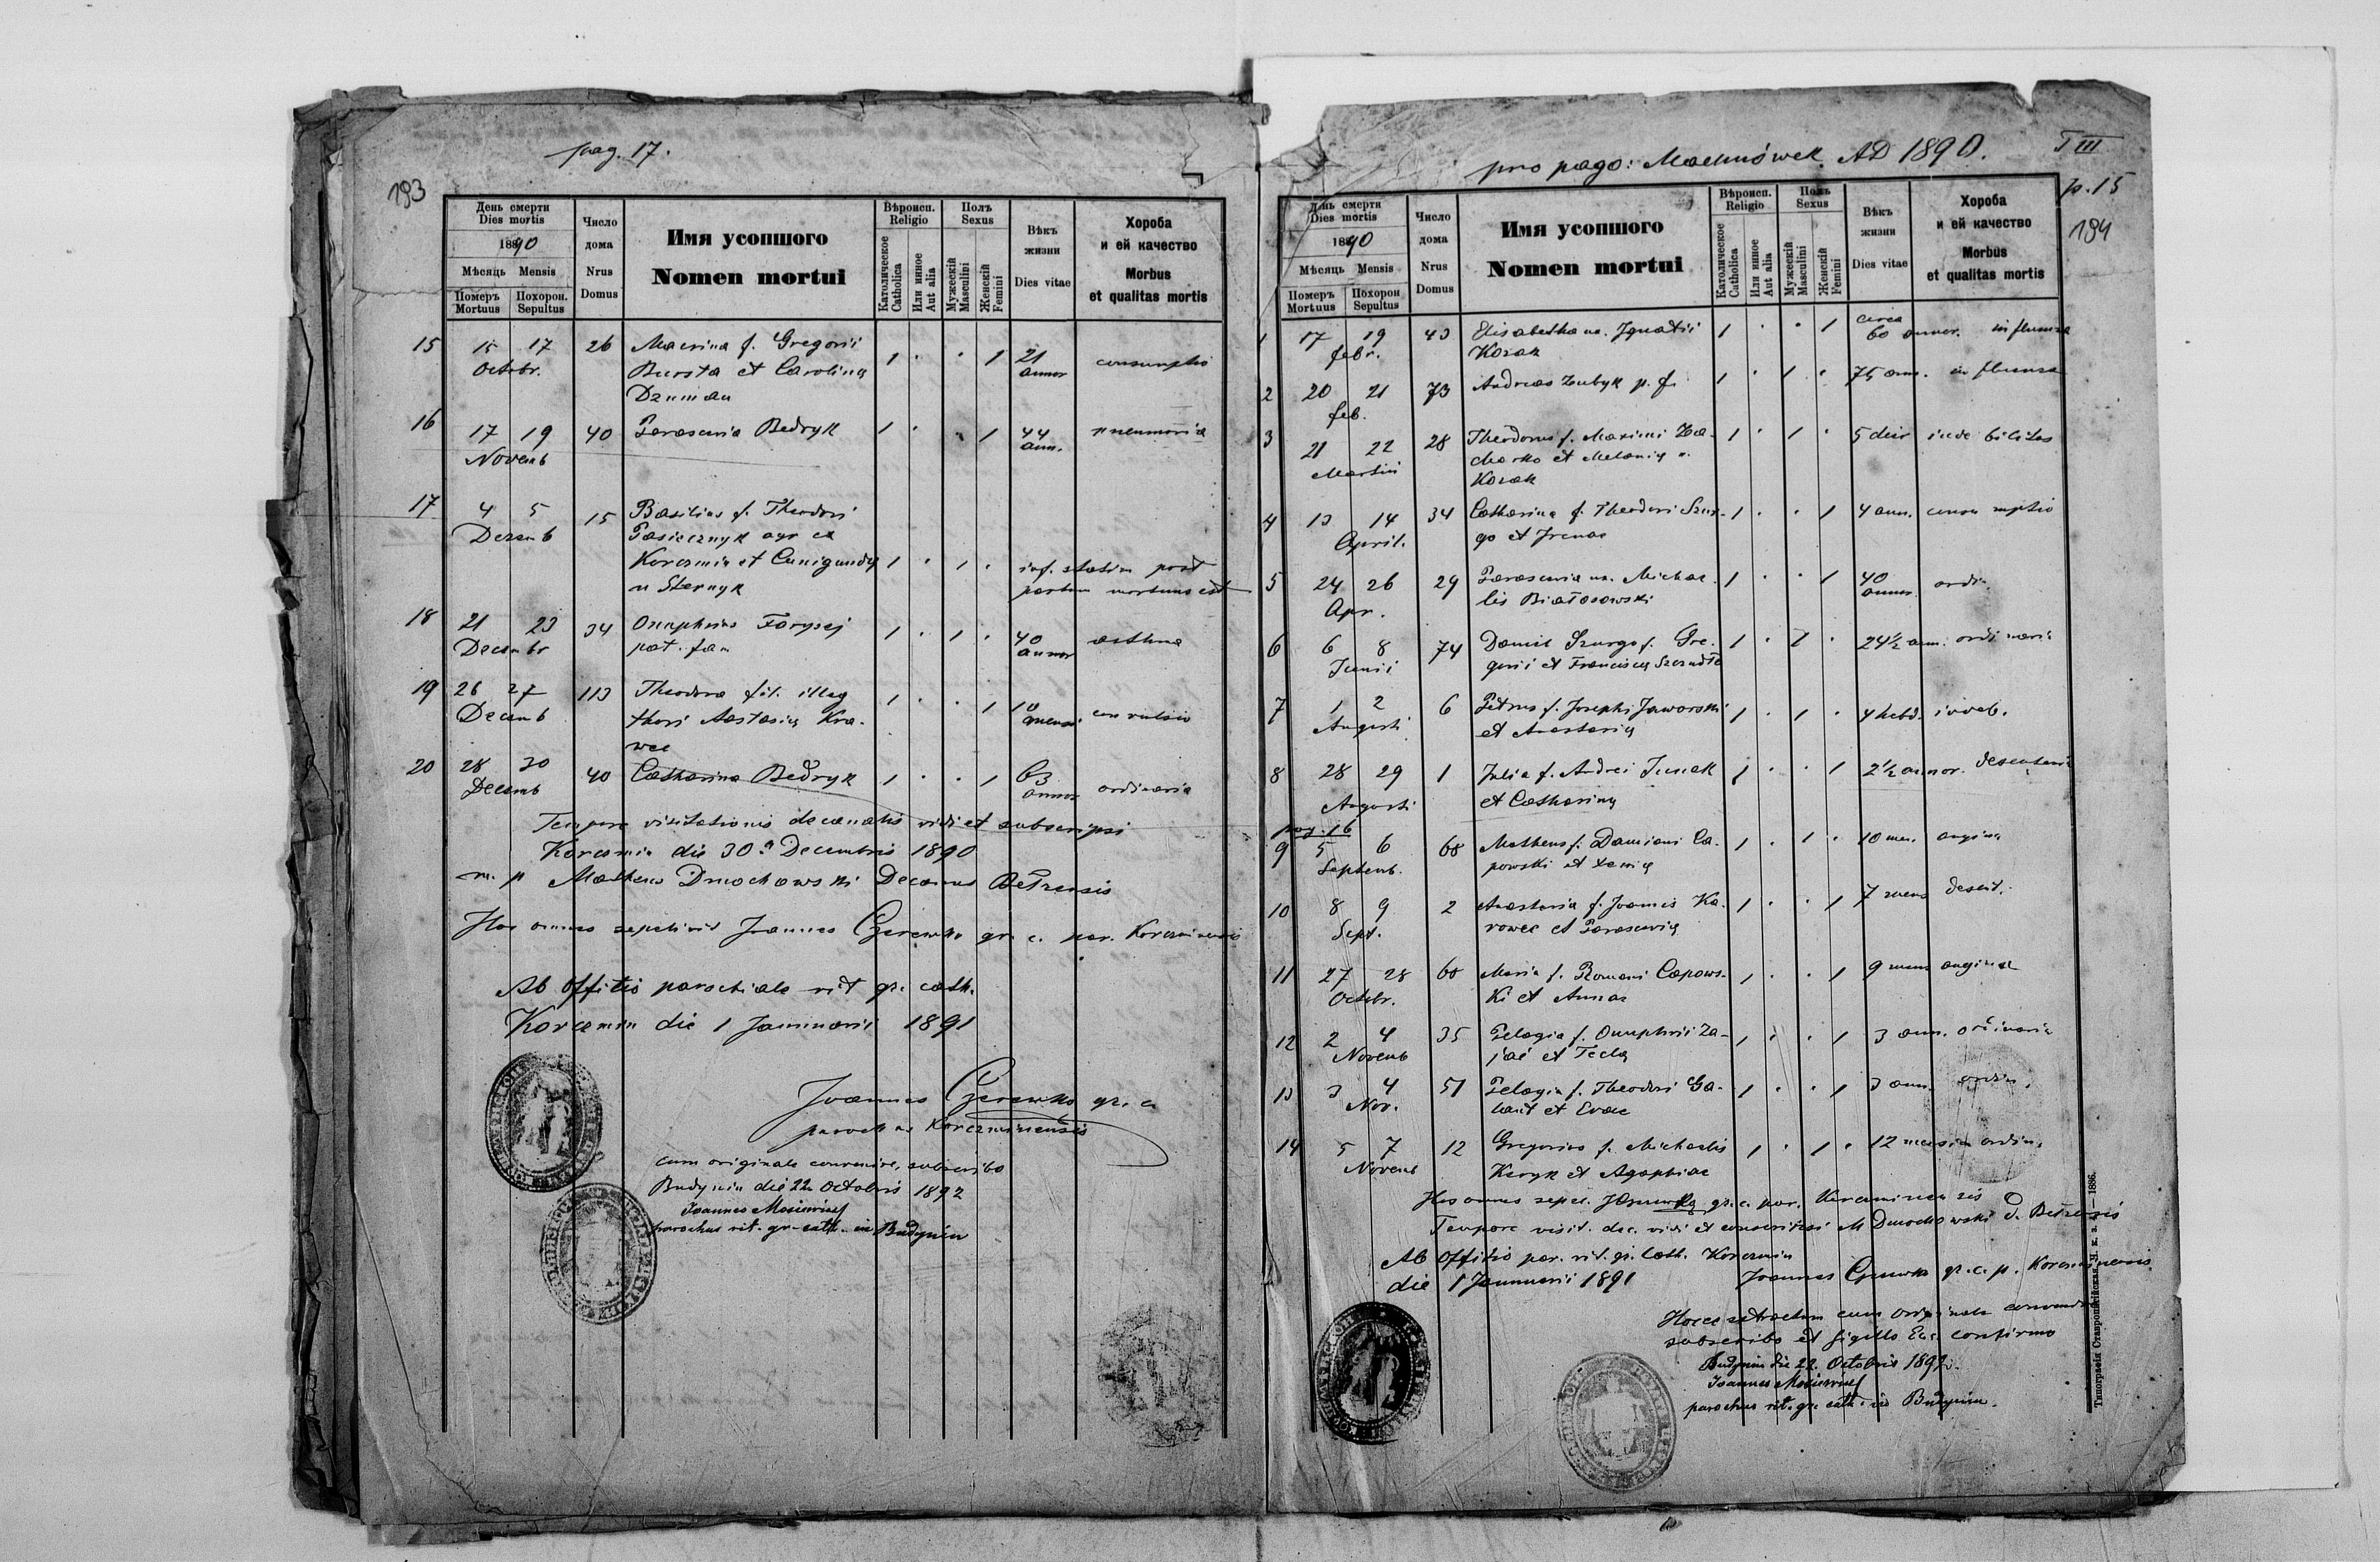 pag. 17.
193
День смерти
Dies mortis
1890
Мѣсяць Mensis
Померъ Похорон.
Mortuus Sepultus
Число дома
Nrus Domus
Имя усопшого
Nomen mortui
Вѣроисп.
Religio
Католическое
Catholica
Или инное
Aut alia
Полъ
Sexus
Мужескій
Masculini
Женскій
Femini
Вѣкъ жизни
Dies vitae
Хороба
и ей качество
Morbus
et qualitas mortis
15 15 17 26 Macrina f. Gregorii 1 . . 1 21 consumptio
Octobr. Bursta et Carolina annor
Dzuman
16 17 19 40 Parascevia Bedryk 1 . . 1 44 pneumonia
Novemb ann.
17 4 5 15 Basilius f. Theodori
Decemb Pasiecznyk agr ex
Korczmin et Cunigundy 1 . 1 . inf. statim post
n Sternyk partum mortuus est
18 21 23 34 Onuphrius Farysej 1 . 1 . 40 asthma
Decembr pat. fam annor
19 26 27 113 Theodora fil. illeg 1 . . 1 10 convulsio
Decemb thori Anastasiy Kra- mensi
wec
20 28 30 40 Catharina Bedryk 1 . . 1 63 ordinaria
Decemb annor
Tempore visitationis decanalis vidi et subscripsi
Korczmin die 30a Decembris 1890
m. p Matheus Dmochowski Decanus Bełzensis
Hos omnes sepelivit Joannes Czerewko gr. c. par. Korczminensis
Ab Offitio parochiale rit gr. cath.
Korczmin die 1 Januarii 1891
Joannes Czerewko gr. c.
parochus Korczminensis
Cum originale convenire, subscribo
Budynin die 22 Octobris 1892
Joannes
parochus rit. gr. cath. in Budynin
pro pago: Machnówek AD 1890.
T III
p. 15
194
День смерти
Dies mortis
1890
Мѣсяць Mensis
Померъ Похорон
Mortuus Sepultus
Число дома
Nrus Domus
Имя усопшого
Nomen mortui
Вѣроисп.
Religio
Католическое
Catholica
Или инное
Aut alia
Полъ
Sexus
Мужескій
Masculini
Женскій
Femini
Вѣкъ жизни
Dies vitae
Хороба
и ей качество
Morbus
et qualitas mortis
1 17 19 43 Elisabetha ux. Ignatii 1 . . 1 circa 60 annor. influenza
febr. Kozak
2 20 21 73 Andreas Zubyk p. f. 1 . 1 . 75 ann. influenza
feb.
3 21 22 28 Theodorus f. Maximi Za- 1 . 1 . 5 dier indebilitas
Martii charko et Melaniy n.
Kozak
4 13 14 34 Catharina f. Theodori Szur- 1 . . 1 4 ann. consumptio
April. go et Irenae
5 24 26 29 Parascevia ux. Michae- 1 . . 1 40 ordin.
Apr. lis Białosowski annor.
6 6 8 74 Daniel Szurgo f. Gre- 1 . 1 . 24½ ann. ordinaria
Junii gorii et Francisciy
7 1 2 6 Petrus f. Josephi Jaworski 1 . 1 . 4 hebd. indeb.
Augusti et Anastasiy
8 28 29 1 Julia f. Andrei Tunek 1 . . 1 2½ annor.
Augusti et Cathariny
pag. 16
9 5 6 68 Matheus f. Damiani Ca- 1 . 1 . 10 men. angina
Septemb. powski et Xeniy
10 8 9 2 Anastasia f. Joannis Ka- 1 . . 1 7 mens
Sept. rowec et Parasceviy
11 27 28 68 Maria f. Romani Capows- 1 . . 1 9 mens angina
Octobr. ki et Annae
12 2 4 35 Pelagia f. Onuphrii Za- 1 . . 1 3 ann. ordinaria
Novemb jać et Tecly
13 3 4 51 Pelagia f. Theodori Ga- 1 . . 1 3 ann. ordin.
Nov. lant et Evae
14 5 7 12 Gregorius f. Michaelis 1 . 1 . 12 mensium ordin.
Novemb Keryk et Agaphiae
Hos omnes sepel. J Czerewko gr. c. par. Korczminensis
Tempore visit. dec. vidi et M Dmochowski d. Bełzensis
Ab Offitio par. rit. gr. Cath. Korczmin
die 1 Januarii 1891 Joannes Czerewko gr. c. p. Korczminensis
Hocce extractum cum originale convenire
subscribo et sigillo Ecc. confirmo
Budynin die 22. Octobris 1892.
Joannes
parochus rit. gr. cath. in Budynin.